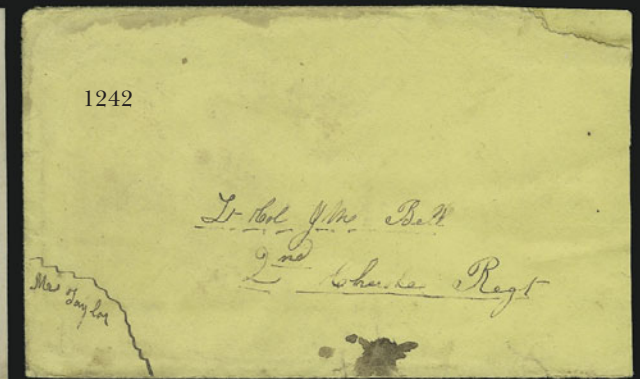 1242
Lt Col Jms Bell
2nd Cherke Regt
Mr Taylor